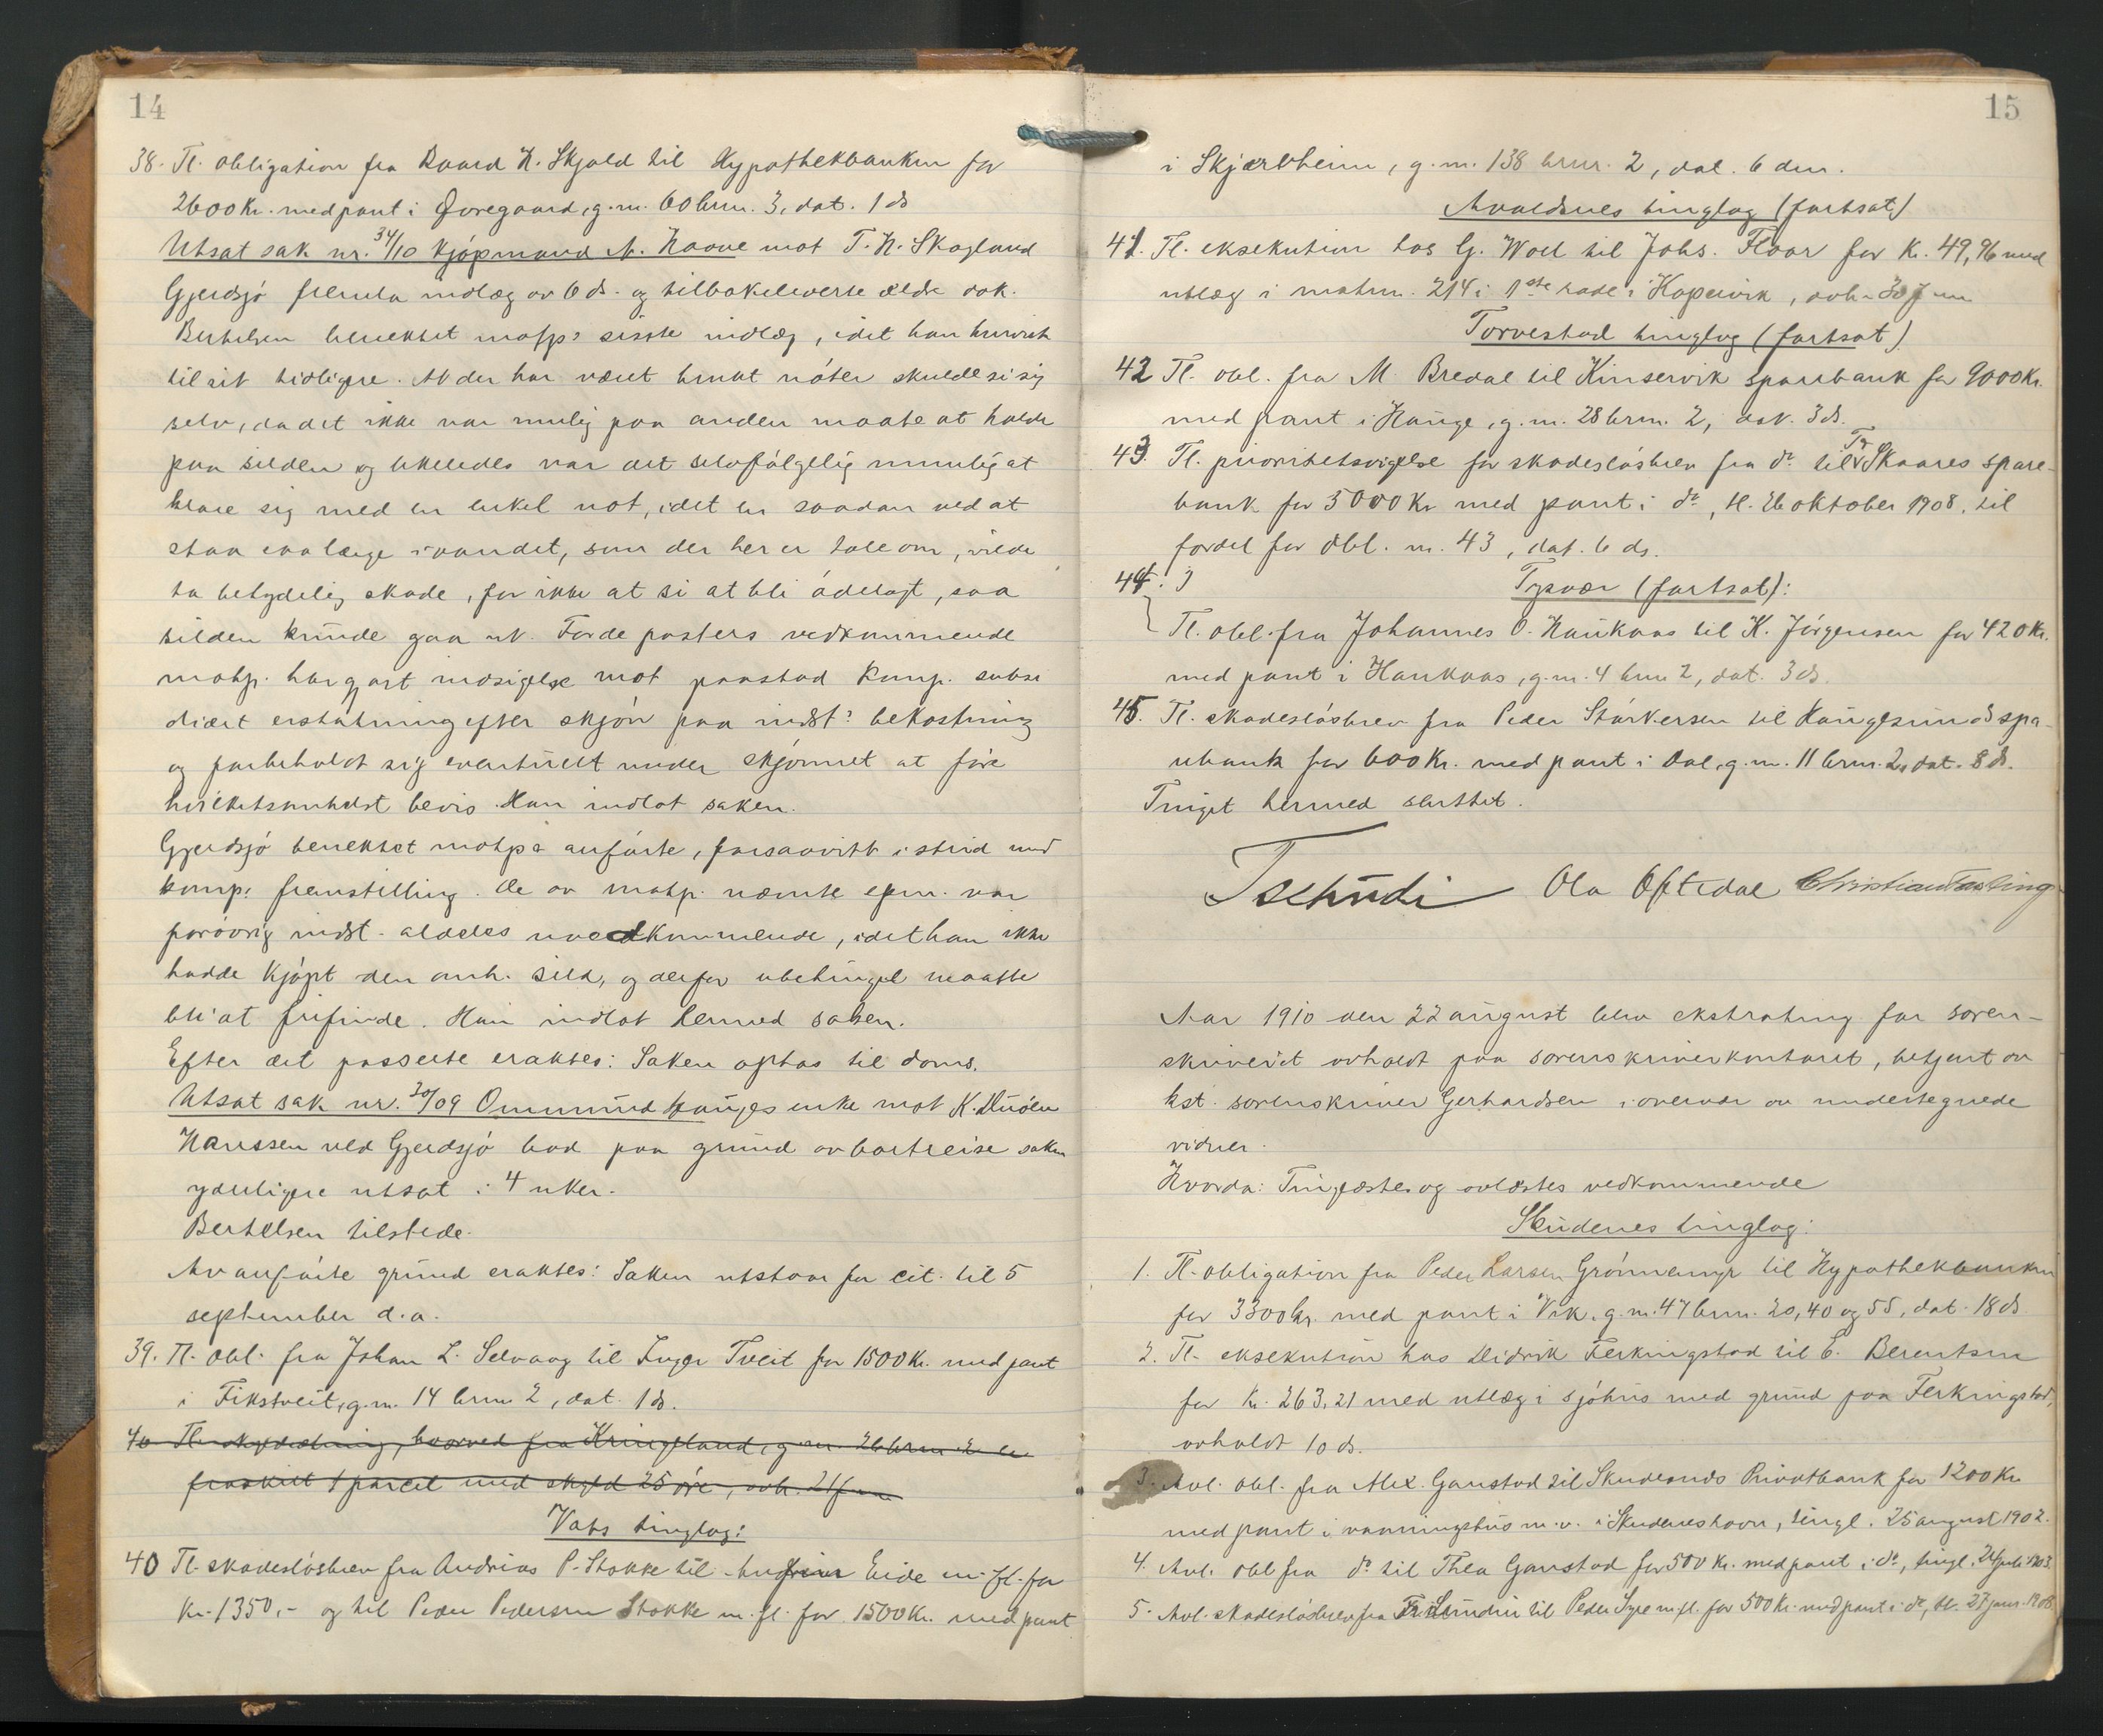 14
38. Tl. obligation fra Baard N. Skjold til Hypothekbanken for
2600 Kr. med pant i Øvregaard, g.m. 60 brm. 3, dat. 1 ds
Utsat sak nr. 34/10 Kjøpmand A. Haave mot T. N. Skogland
Gjerdsjø fremla indlæg av 6 ds. og tilbakeleverte ældre dok.
Bertelsen benektet motp's sisste indlæg, idet han henviste
til sit tidligere. At der har været brukt nøter skulde si sig
selv, da det ikke var mulig paa anden maate at holde
paa silden og likeledes var det selvfølgelig umulig at
klare sig med en enkel not, idet en saadan ved at
staa saa længe i vandet, som der her er tale om, vilde
ta betydelig skade, for ikke at si at bli ødelagt, saa
silden kunde gaa ut. For de posters vedkommende
motp. har gjort indsigelse mot paastod komp. subsi
diært erstatning efter skjøn paa indst's bekostning
og forbeholdt sig eventuelt under skjønnet at føre
hvilketsomhelst bevis. Han indlot saken.
Gjerdsjø benektet motps anførte, forsaavitt i strid med
komps fremstilling. De av motp. nævnte epm. var
forøvrig indst. aldeles uvedkommende, idet han ikke
hadde kjøpt den omh. sild, og derfor ubetinget maatte
bli at frifinde. Han indlot hermed saken.
Efter det passerte eraktes: Saken optas til doms.
Utsat sak nr. 30/09 Ommund Hauges enke mot K. Duöen
Hanssen ved Gjerdsjø bad paa grund av bortreise saken
yderligere utsat i 4 uker.
Bertelsen tilstede.
Av anførte grund eraktes: Saken utstaar for cit. til 5
september d.a.
39. Tl. obl. fra Johan L. Selvaag til Inger Tveit for 1500 Kr. med pant
i Fikstveit, g.m. 14 brm 2, dat. 1 ds.
40 Tl. skyldeling, hvorved fra Kringeland, g.m. 26 brm 2 er
fraskilt 1 parcel med skyld 25 øre, avh. 21 f.m.
Vats tinglag:
40 Tl. skadesløsbrev fra Andrias P. Stokke til Eide m. fl. for
Kr. 1350,- og til Peder Pedersen Stokke m. fl. for 1500 Kr. med pant
15
i Skjærbheim, g.m. 138 brnr. 2, dat. 6 dm.
Avaldsnes tinglag (fortsat)
41. Tl. eksekution hos G. Wold til Johs. Floor for Kr. 49,96 med
utlæg i matrn. 214 i 1ste rode i Kopervik, avh. 30 f.m.
Torvestad tinglag (fortsat)
42 Tl. obl. fra M. Bredal til Kinservik sparebank for 9000 Kr.
med pant i Hauge, g.m. 28 brm. 2, dat. 3 ds.
43. Tl. prioritetsvigelse for skadesløsbrev fra do til Tv Skaares spare-
bank for 5000 Kr med pant i do, tl. 26 oktober 1908, til
fordel for obl. nr. 43, dat. 6 ds.
44.
Tysvær (fortsat):
Tl. obl. fra Johannes O. Haukaas til K. Jørgensen for 420 Kr.
med pant i Haukaas, g.m. 4 brm 2, dat. 3 ds.
45. Tl. skadesløsbrev fra Peder Størkersen til Haugesunds spa-
rebank for 600 Kr. med pant i Dal, g.m. 11 brm. 2, dat. 8 ds.
Tinget hermed sluttet.
Tschudi Ola Oftedal Christian Tasling
Aar 1910 den 22 august blev ekstrating for soren-
skriveriet avholdt paa sorenskriverkontoret, betjent av
kst. sorenskriver Gerhardsen i overvær av undertegnede
vidner.
Hvorda: Tinglæstes og avlæstes vedkommende
Skudenes tinglag:
1. Tl. obligation fra Peder Larsen Grønnemyr til Hypothekbanken
for 3300 Kr. med pant i Vik, g.m. 47 brm. 20, 40 og 55, dat. 18 ds
2. Tl. eksekution hos Didrik Ferkingstad til E. Berentsen
for Kr. 263,21 med utlæg i sjøhus med grund paa Ferkingstad,
avholdt 10 ds.
3. Avl. obl. fra Alex. Gaustad til Skudesnæs Privatbank for 1200 Kr
med pant i vaaningshus m.v. i Skudeneshavn, tingl. 25 august 1902.
4. Avl. obl fra do til Thea Gaustad for 500 Kr. med pant i do, tingl. 24 juli 1903.
5. Avl. skadesløsbrev fra til Peder Syre m. fl. for 500 Kr. med pant i do, tl. 27 janr. 1908